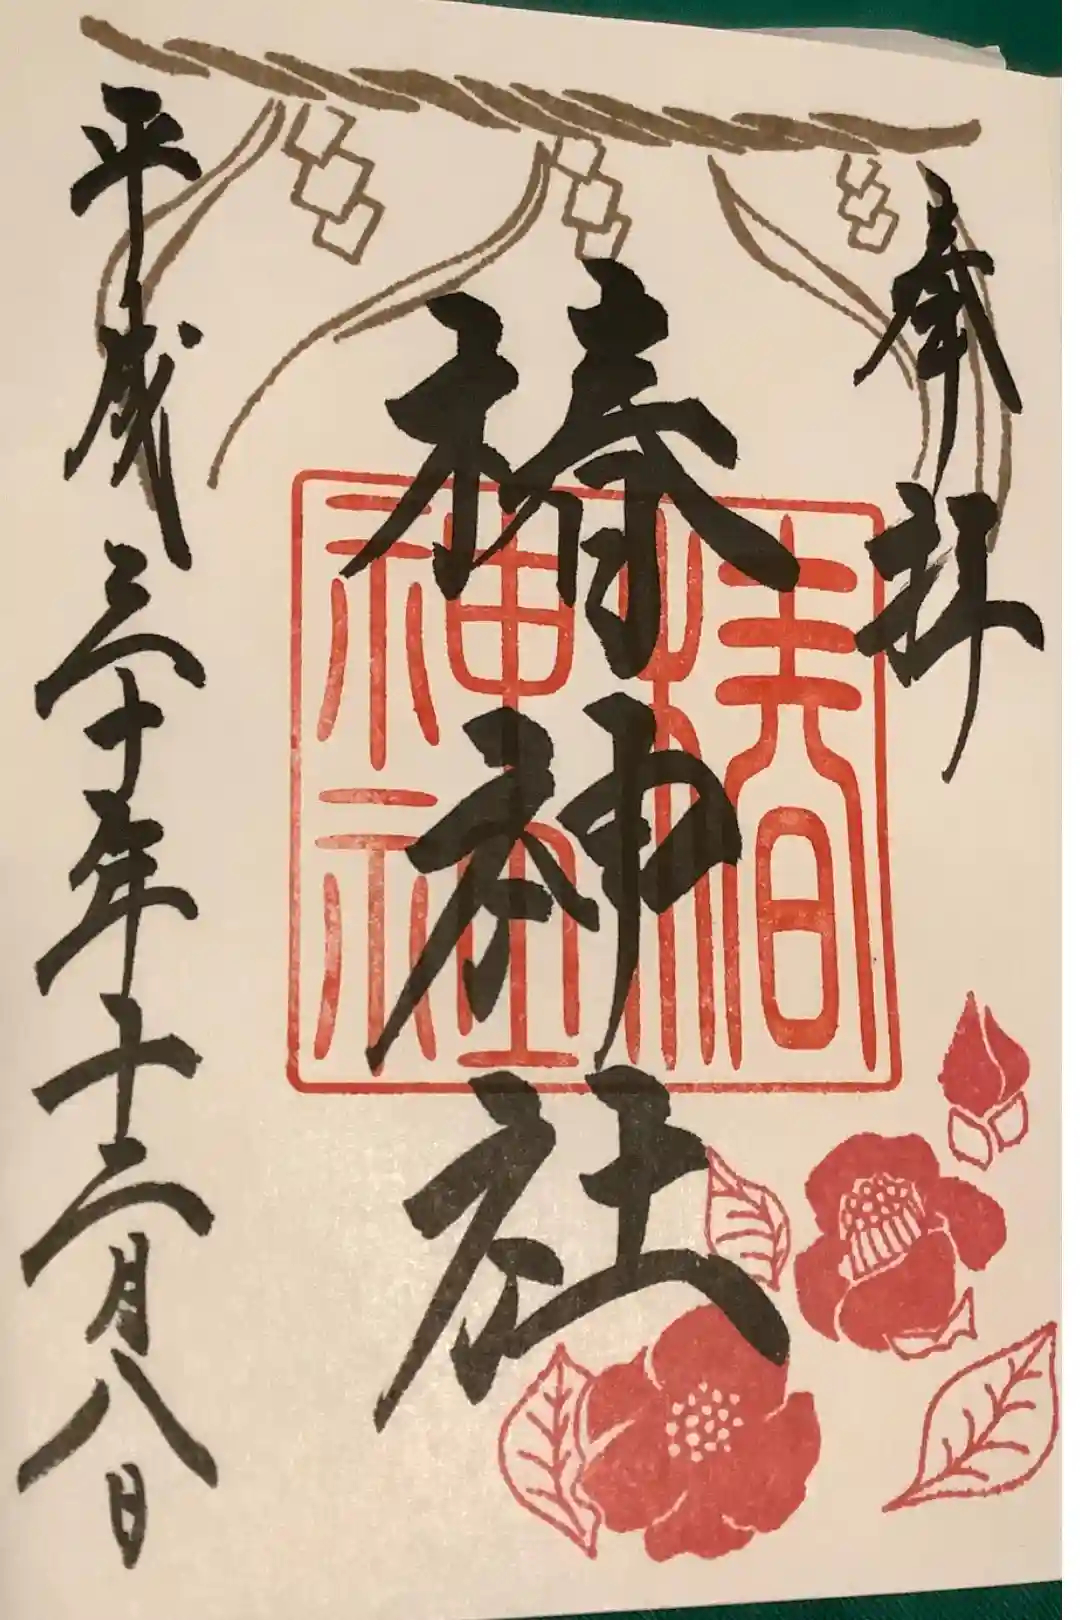 奉拝
椿神社
椿
神社
平成三十年十二月八日